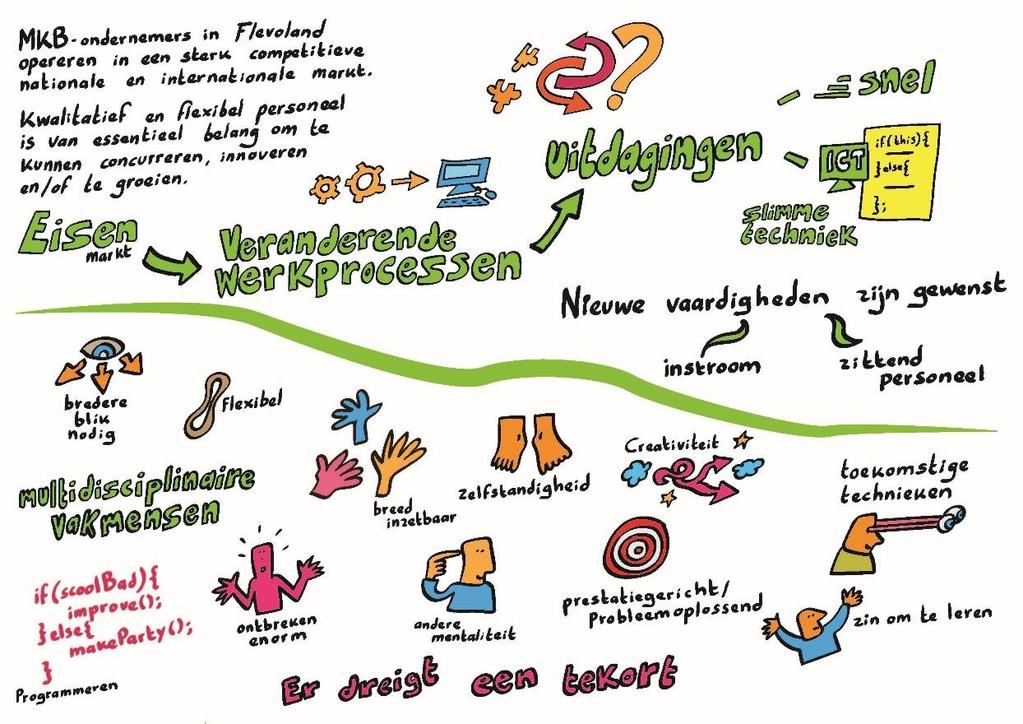 MKB-ondernemers in Flevoland
opereren in een sterk competitieve
nationale en internationale markt.
Kwalitatief en flexibel personeel
is van essentieel belang om te
kunnen concurreren, innoveren
en/of te groeien.
Eisen
markt
Veranderende
werkprocessen
?
uitdagingen
snel
ICT
if(this){
}else{
};
slimme
techniek
Nieuwe vaardigheden zijn gewenst
instroom
zittend
personeel
bredere
blik
nodig
flexibel
multidisciplinaire
vakmensen
breed
inzetbaar
zelfstandigheid
Creativiteit
toekomstige
technieken
if(scoolBad){
improve();
}else{
makeParty();
}
Programmeren
ontbreken
enorm
andere
mentaliteit
prestatiegericht/
Probleemoplossend
zin om te leren
Er dreigt een tekort